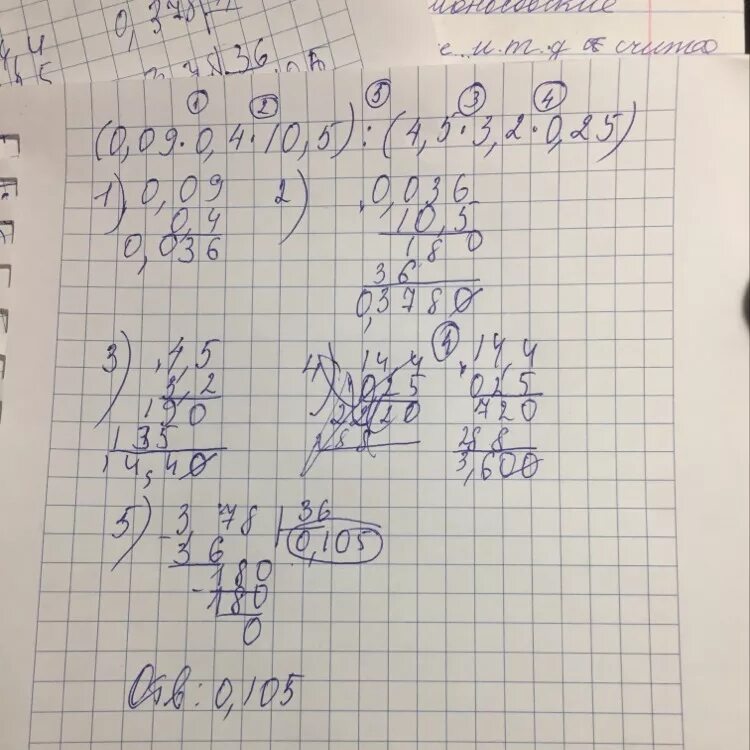 0,378
36
с. и. т. д счита
① ② ⑤ ③ ④
(0,09·0,4·10,5):(4,5·3,2·0,25)
1) 0,09
0,4
0,036
2) 0,036
10,5
180
36
0,3780
3) 45
3,2
190
135
14,40
4) 14,4
025
2220
288
④ 14,4
025
720
288
3,600
5) 3 78 36
36 0,105
180
180
0
Отв: 0,105